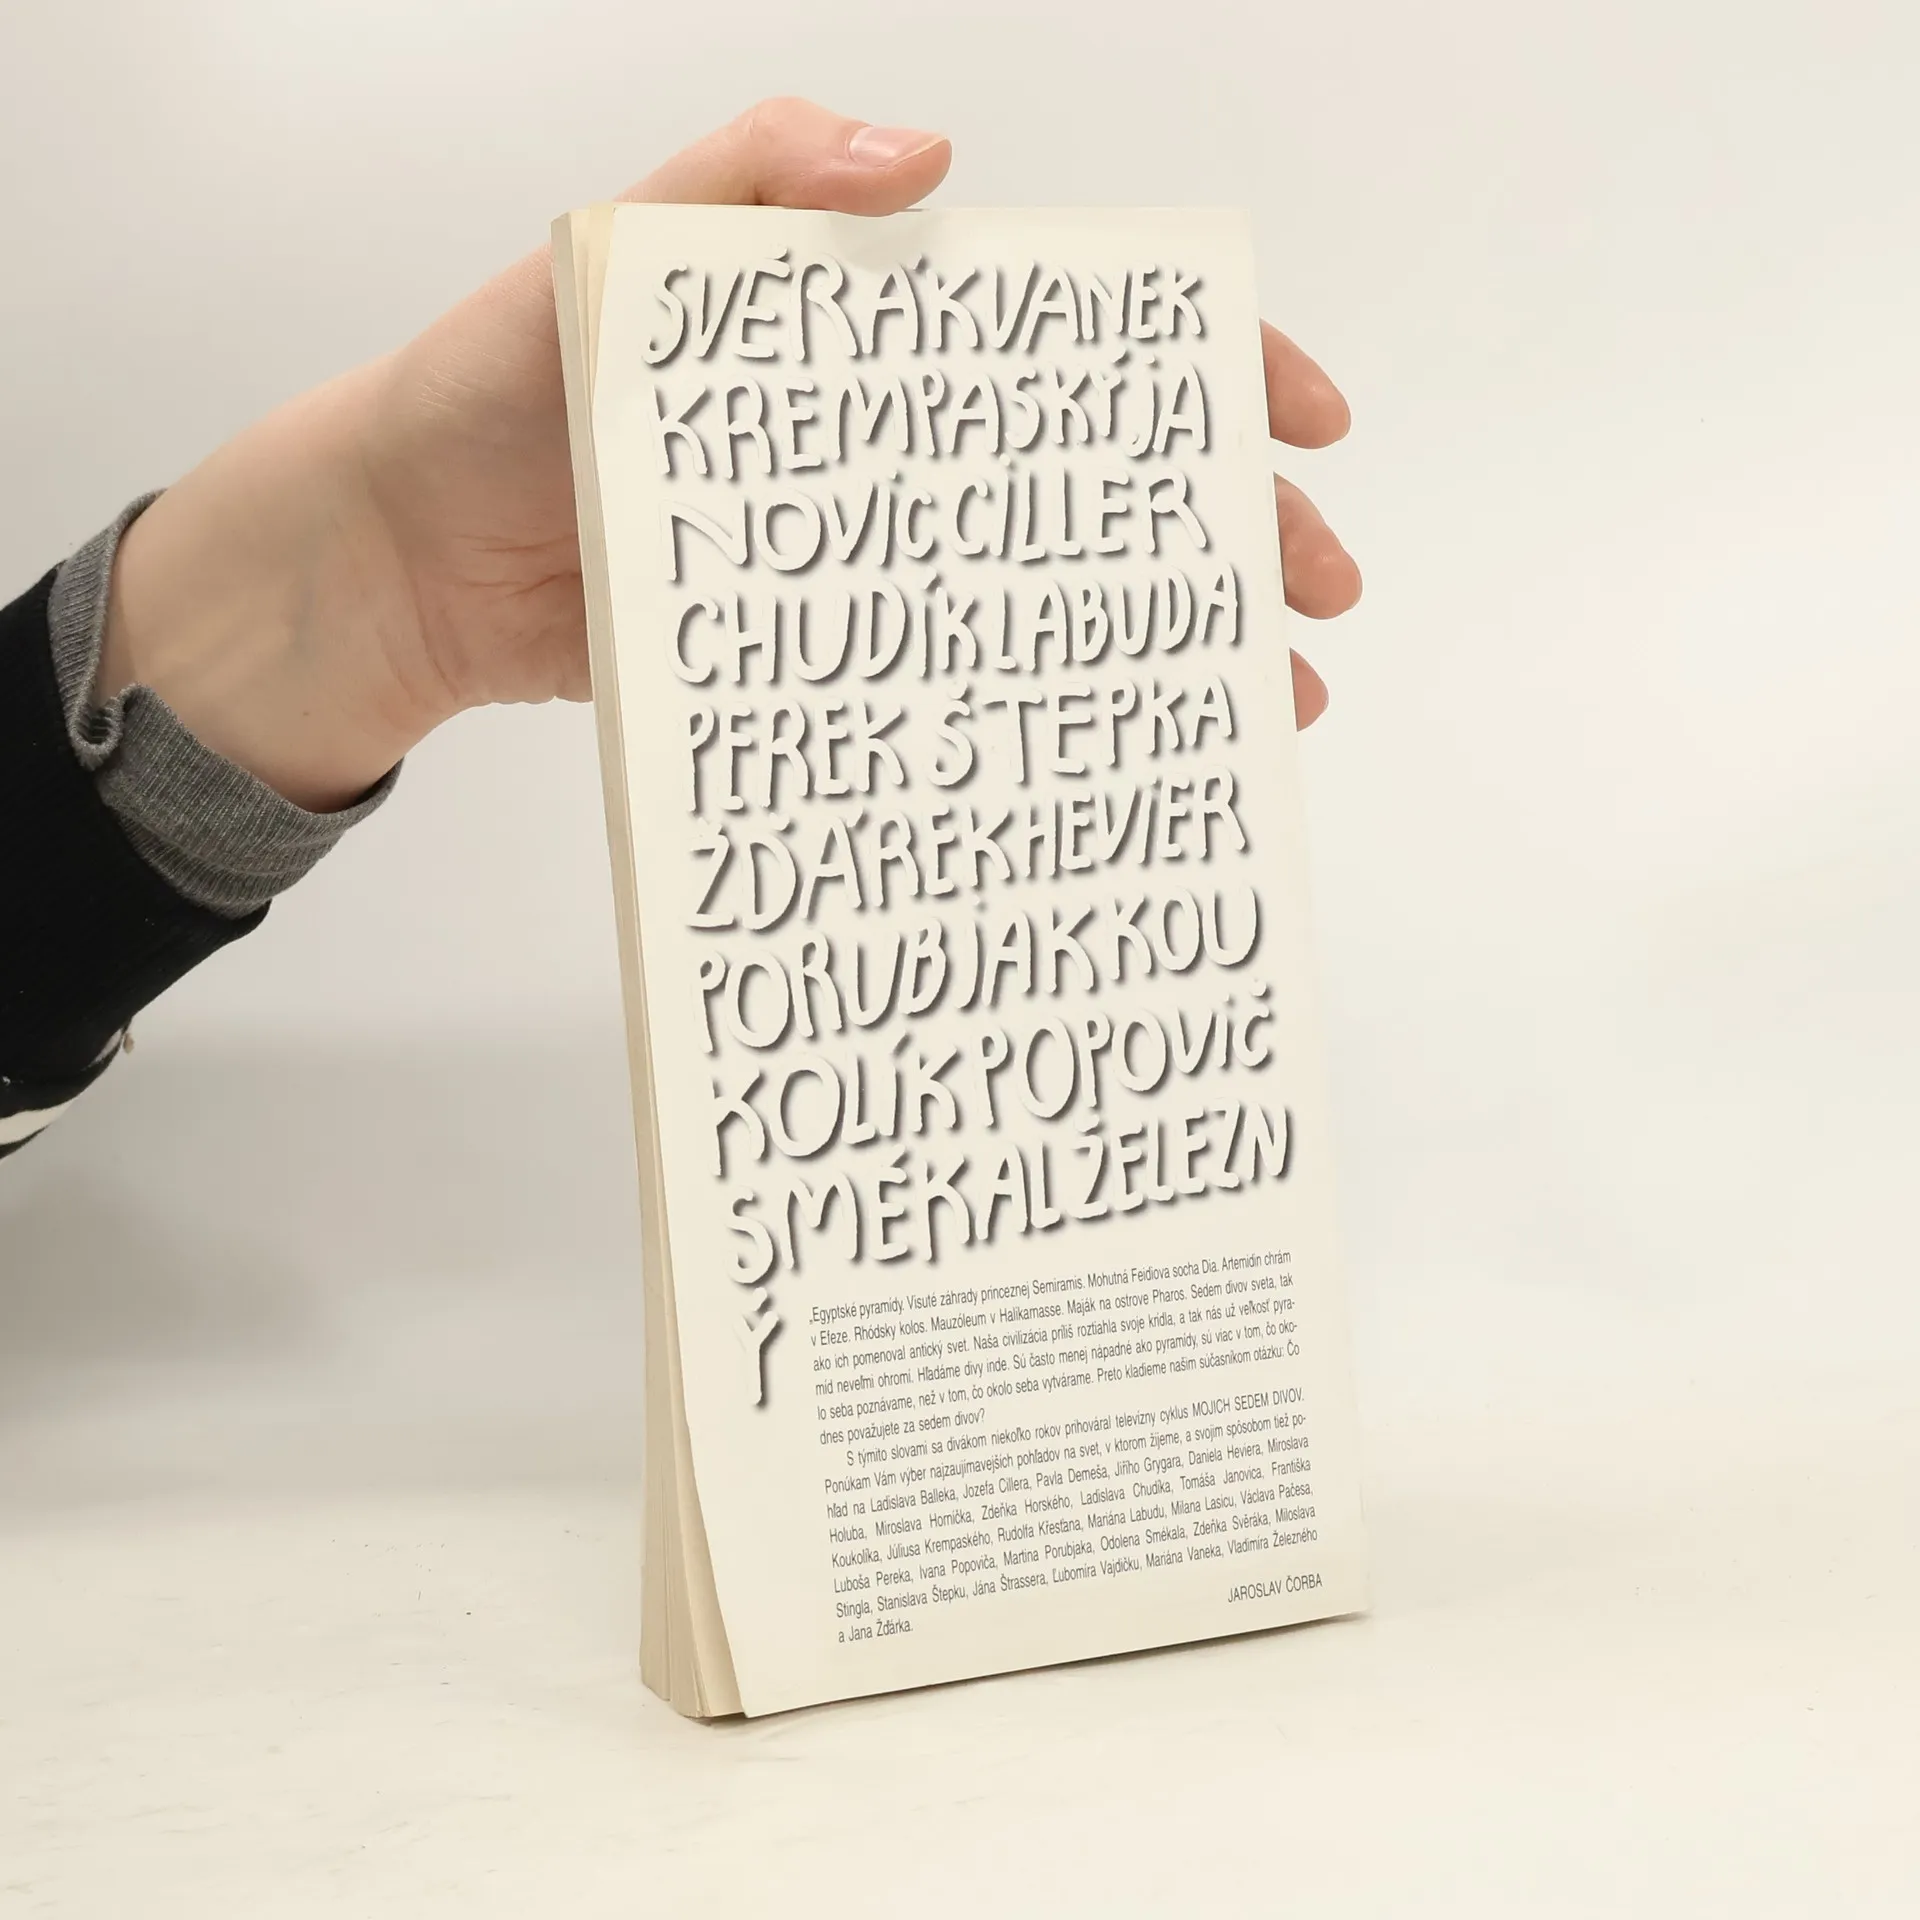 SVĚRÁKVANEK
KREMPASKÝJA
NOVICCILLER
CHUDÍKLABUDA
PEREK ŠTEPKA
ŽĎÁREKHEVIER
PORUBJAKKOU
KOLÍKPOPOVIČ
SMÉKALŽELEZN
Ý
„Egyptské pyramídy. Visuté záhrady princeznej Semiramis. Mohutná Feidiova socha Dia. Artemidin chrám
v Efeze. Rhódsky kolos. Mauzóleum v Halikarnasse. Maják na ostrove Pharos. Sedem divov sveta, tak
ako ich pomenoval antický svet. Naša civilizácia príliš roztiahla svoje krídla, a tak nás už veľkosť pyra-
míd neveľmi ohromí. Hľadáme divy inde. Sú často menej nápadné ako pyramídy, sú viac v tom, čo oko-
lo seba poznávame, než v tom, čo okolo seba vytvárame. Preto kladieme našim súčasníkom otázku: Čo
dnes považujete za sedem divov?
S týmito slovami sa divákom niekoľko rokov prihováral televízny cyklus MOJICH SEDEM DIVOV.
Ponúkam Vám výber najzaujímavejších pohľadov na svet, v ktorom žijeme, a svojim spôsobom tiež po-
hľad na Ladislava Balleka, Jozefa Cillera, Pavla Demeša, Jiřího Grygara, Daniela Heviera, Miroslava
Holuba, Miroslava Horníčka, Zdeňka Horského, Ladislava Chudíka, Tomáša Janovica, Františka
Koukolíka, Júliusa Krempaského, Rudolfa Křesťana, Mariána Labudu, Milana Lasicu, Václava Pačesa,
Luboša Pereka, Ivana Popoviča, Martina Porubjaka, Odolena Smékala, Zdeňka Svěráka, Miloslava
Stingla, Stanislava Štepku, Jána Štrassera, Ľubomíra Vajdičku, Mariána Vaneka, Vladimíra Železného
a Jana Žďárka.
JAROSLAV ČORBA